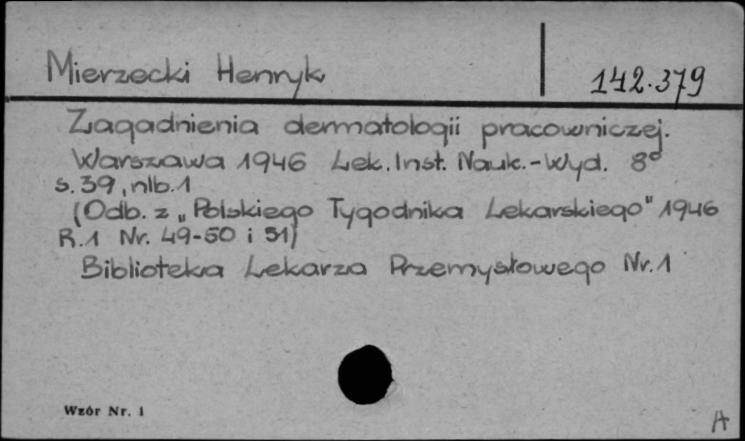 Mierzecki Henryk 142.379
Zagadnienia dermatologii pracowniczej.
Warszawa 1946 Lek. Inst. Nauk.-Wyd. 8°
s. 39, nlb. 1
(Odb. z „Polskiego Tygodnika Lekarskiego" 1946
R. 1 Nr. 49-50 i 51)
Biblioteka Lekarza Przemysłowego Nr. 1
Wzór Nr. 1
A